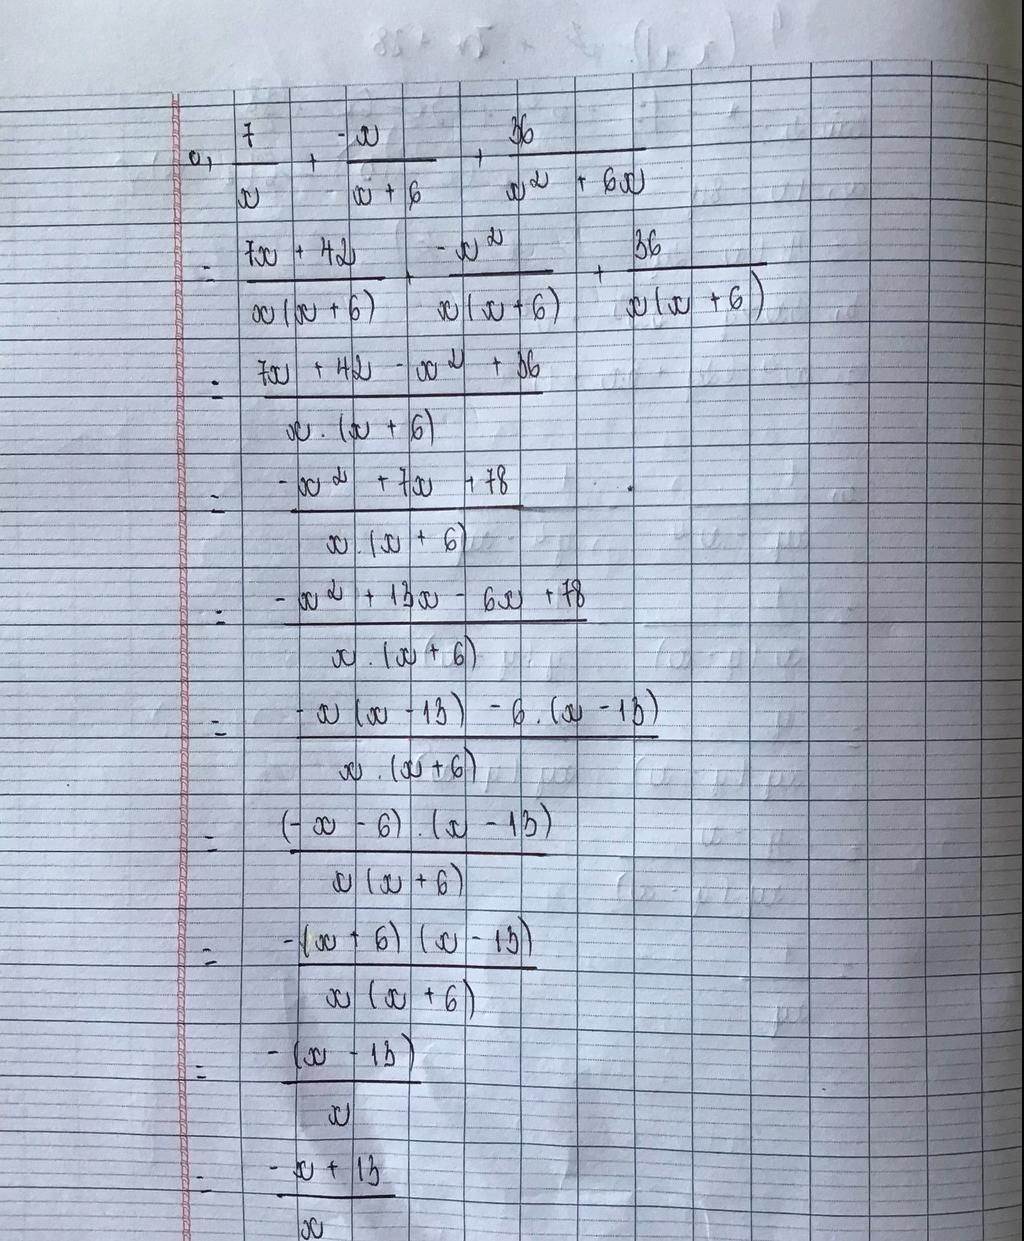 a, 7/x + -x/(x + 6) + 36/(x² + 6x)
= (7x + 42)/(x(x + 6)) + -x²/(x(x + 6)) + 36/(x(x + 6))
= (7x + 42 - x² + 36)/(x . (x + 6))
= (-x² + 7x + 78)/(x . (x + 6))
= (-x² + 13x - 6x + 78)/(x . (x + 6))
= (-x(x - 13) - 6 . (x - 13))/(x . (x + 6))
= ((-x - 6) . (x - 13))/(x(x + 6))
= (-(x + 6)(x - 13))/(x(x + 6))
= (-(x - 13))/x
= (-x + 13)/x